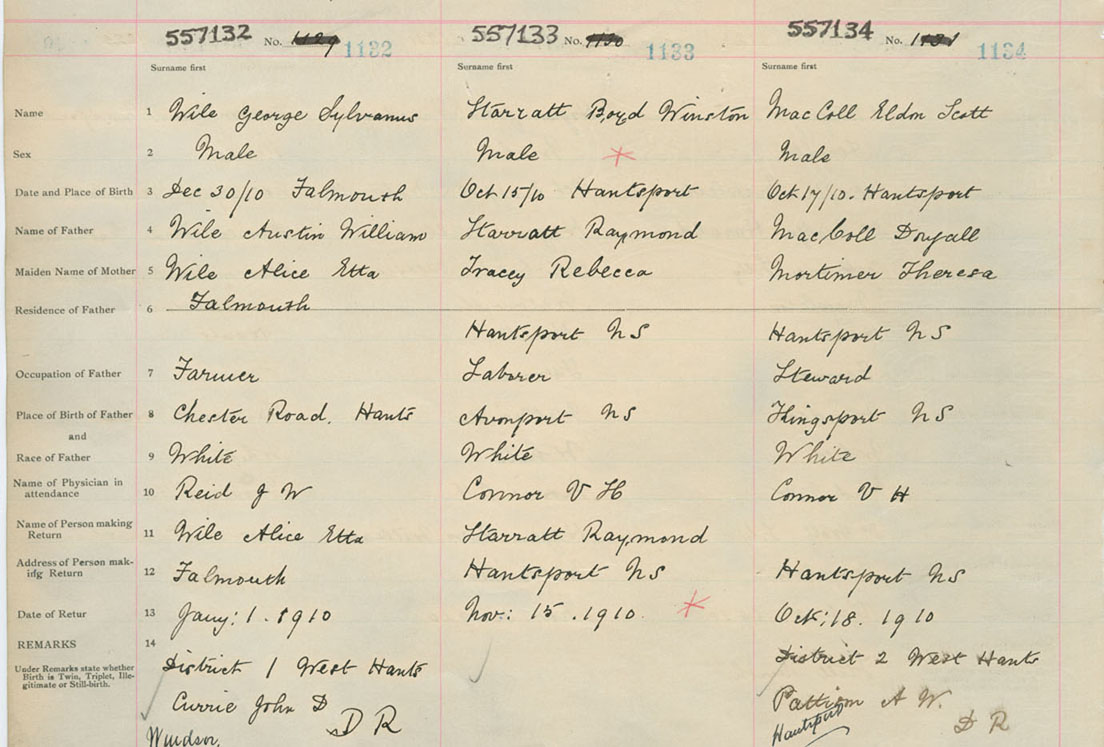 557132 No. 1129 1132 557133 No. 1130 1133 557134 No. 1131 1134
Surname first Surname first Surname first
Name 1 Wile George Sylvanus Starratt Boyd Winston MacColl Eldon Scott
Sex 2 Male Male Male
Date and Place of Birth 3 Dec 30/10 Falmouth Oct 15/10 Hantsport Oct 17/10. Hantsport
Name of Father 4 Wile Austin William Starratt Raymond MacColl Dugall
Maiden Name of Mother 5 Wile Alice Etta Tracey Rebecca Mortimer Theresa
Residence of Father 6 Falmouth Hantsport NS Hantsport NS
Occupation of Father 7 Farmer Laborer Steward
Place of Birth of Father 8 Chester Road, Hants Avonport NS Kingsport NS
and
Race of Father 9 White White White
Name of Physician in
attendance 10 Reid J W Connor V H Connor V H
Name of Person making
Return 11 Wile Alice Etta Starratt Raymond
Address of Person mak-
ing Return 12 Falmouth Hantsport NS Hantsport NS
Date of Retur 13 Jany: 1. 1910 Nov: 15. 1910. Oct: 18. 1910
REMARKS 14
Under Remarks state whether
Birth is Twin, Triplet, Ille-
gitimate or Still-birth.
District 1 West Hants District 2 West Hants
Currie John D D R A W. D R
Windsor. Hantsport